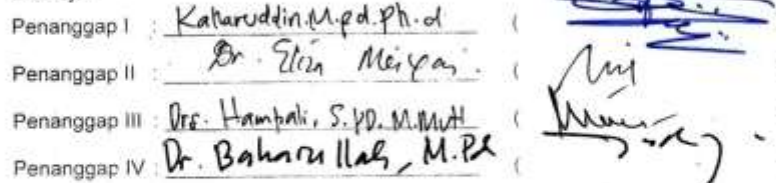 Penanggap I : Kaharuddin.M.pd.Ph.d (
Penanggap II : Dr. Eliza Meiyani. (
Penanggap III : Drs. Hambali, S.pd. M.Hum (
Penanggap IV : Dr. Baharullah, M.Pd (